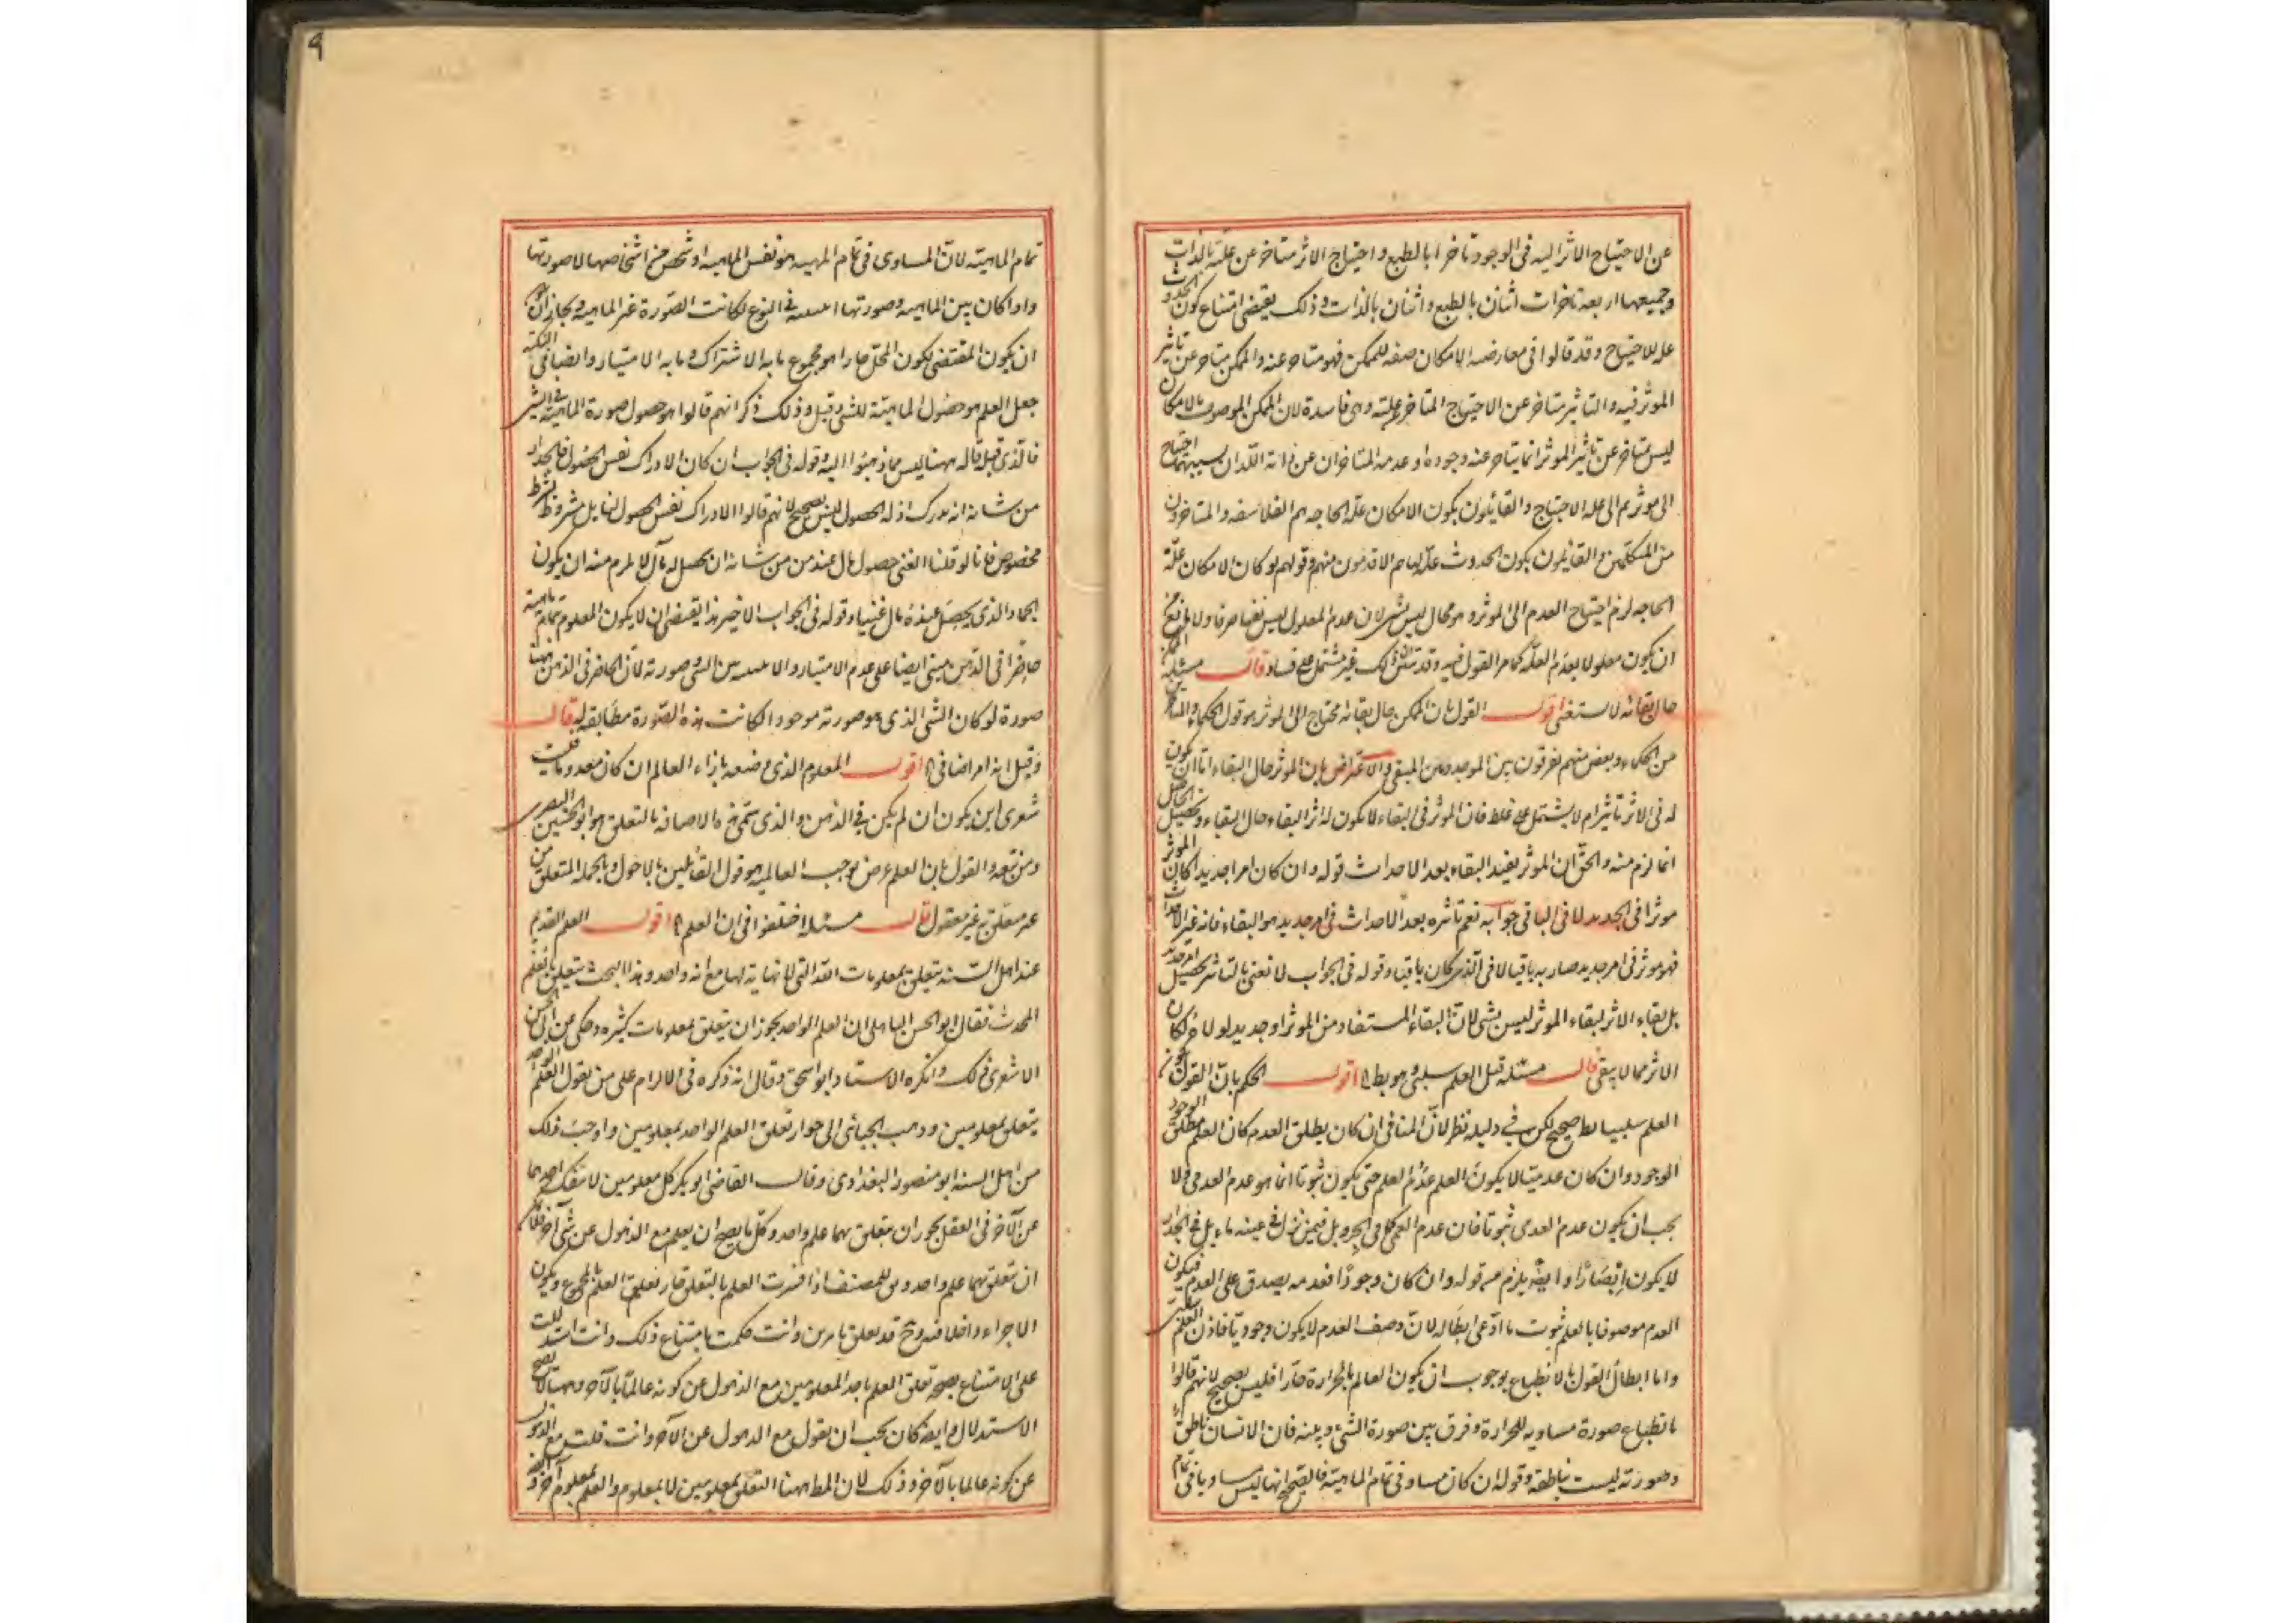 عن الاحتياج الاثر اليه فى الوجود تاخرا بالطبع و احتياج الاثر متاخر عن علته بالذات
وجميعها اربعة تاخرات اثنان بالطبع واثنان بالذات وذلك يقتضى امتناع كون الحدوث
علة للاحتياج وقد قالوا فى معارضه الامكان صفه للممكن فهو متاخر عنه والممكن متاخر عن تاثير
الموثر فيه والتاثير متاخر عن الاحتياج المتاخر عن علته وهى فاسدة لان الممكن الموصوف بالامكان
ليس متاخر عن تاثير الموثر انما يتاخر عنه وجوده او عدمه المتاخران عن ذاته اللذان بسببهما احتياج
الى موثر ثم الى علة الاحتياج والقائلون بكون الامكان علة الحاجه هم الفلاسفه والمتاخرون
من المتكلمين والقائلون بكون الحدوث علة لها هم الاقدمون منهم وقولهم لو كان الامكان علة
الحاجه لزم احتياج العدم الى الموثر وهو محال ليس بشئ لان عدم المعلول ليس نفيا صرفا ولا يمتنع
ان يكون معلولا لعدم العلة كما مر القول فيه وقد تبين ان ذلك غير مشتمل على فساد قال مسئلة الممكن
حال بقائه لا يستغنى اقول القول بان الممكن حال بقائه محتاج الى الموثر هو قول الحكماء والمتاخرين
من الحكماء وبعض منهم يفرقون بين الموجد وبين المبقى والاعتراض بان الموثر حال البقاء اما ان يكون
له فى الاثر تاثير ام لا يشتمل على غلط فان الموثر فى البقاء لا يكون له اثر البقاء حال البقاء وتحصيل الحاصل
انما لزم منه والحق ان الموثر يفيد البقاء بعد الاحداث قوله وان كان امرا جديدا كان الموثر
موثرا فى الجديد لا فى الباقى جوابه نعم تاثره بعد الاحداث فى امر جديد هو البقاء فانه غير الاحداث
فهو موثر فى امر جديد صار به باقيا لا فى الذى كان باقيا وقوله فى الجواب لا نعنى بالتاثير تحصيل امر جديد
بل بقاء الاثر لبقاء الموثر ليس بشئ لان البقاء المستفاد من الموثر امر جديد لولا ذلك لكان
الاثر مما لا يبقى قال مسئلة قيل العلم سلبى وهو بط اقول الحكم بان القول بكون
العلم سلبيا بط صحيح لكن فى دليله نظر لان المنافى ان كان يطلق العدم كان العلم مطلق الوجود
الوجود وان كان عدميا لا يكون العلم عدم العلم حتى يكون ثبوتا انما هو عدم العدمى ولا
يجب ان يكون عدم العدمى ثبوتا فان عدم العمى كما فى الحجر وبل فيمن نزل فى عينه ماء بل فى الجدار
لا يكون ابصارا وايضا يلزم من قوله وان كان وجودا فعدمه يصدق على العدم فيكون
العدم موصوفا بالعلم ثبوت ما ادعى ابطاله لان وصف العدم لا يكون وجوديا فاذن العلم سلبى
واما ابطال القول بالانطباع بوجوب ان يكون العالم بالحرارة حارا فليس بصحيح لانهم قالوا
بانطباع صورة مساوية للحرارة وفرق بين صورة الشئ وبينه فان الانسان ناطق
وصورته ليست بناطقة وقوله ان كان مساو فى تمام الماهية فالصحيح انها ليس مساويا فى تمام
تمام الماهية لان المساوى فى تمام المهيه هو نفس الماهية او شخص من اشخاصها لا صورتها
واذا كان بين الماهية وصورتها اثنينية فى النوع لكانت الصورة غير الماهية وبجاز ان
ان يكون المقتضى لكون المحل حارا هو مجموع ما به الاشتراك وما به الامتياز وايضا فى النكتة
جعل العلم هو حصول الماهية للشئ وقبل وذلك ذكر انهم قالوا هو حصول صورة الماهية فى الشئ
فالذى قبله قاله ههنا ليس مما ذهبوا اليه وقوله فى الجواب ان كان الادراك نفس الحصول فالجدار
من شانه انه يدرك اذ له الحصول ليس بصحيح لانهم قالوا الادراك نفس الحصول لقابل مشروط بشرط
مخصوص فانا لو قلنا الغنى حصول مال عند من من شانه ان يحصل له مال لا يلزم منه ان يكون
الجماد الذى يحصل عنده مال غنيا وقوله فى الجواب الاخير هذا يقتضى ان لا يكون المعلوم تمام ماهيته
حاضرا فى الذهن مبنى ايضا على عدم الامتياز والاثنينية بين الشئ وصورته لان الحاضر فى الذهن ههنا
صورة لو كان الشئ الذى هو صورته موجودا لكانت هذه الصورة مطابقه له قال
وقيل انه امر اضافى اقول المعلوم الذى وضعه بازاء العالم ان كان معدوما ليت
شعرى اين يكون ان لم يكن فى الذهن والذى سمى هذه الاضافه بالتعلق هو ابو الحسين البصرى
ومن تبعه والقول بان العلم عرض يوجب العالمية هو قول القائلين بالاحوال وبالجمله المتعلق من
غير متعلق به غير معقول قال مسئله اختلفوا فى ان العلم اقول العلم القديم
عند اهل السنه يتعلق بمعلومات الله التى لا نهاية لها مع انه واحد وهذا البحث يتعلق بالعلم
المحدث فقال ابو الحسن الباهلى ان العلم الواحد يجوز ان يتعلق بمعلومات كثيره وحكى عن ابى الحسن
الاشعرى ذلك وانكره الاستاد ابو اسحق وقال انه ذكره فى الالزام على من يقول العلم الواحد
يتعلق بمعلومين وذهب الجبائى الى جواز تعلق العلم الواحد بمعلومين واوجب ذلك
من اهل السنه ابو منصور البغدادى وقال القاضى ابو بكر كل معلومين لا ينفك احدهما
عن الآخر فى العقل يجوز ان يتعلق بهما علم واحد وكل ما يصح ان يعلم مع الذهول عن شئ آخر فلا يمكن
ان يتعلق بهما علم واحد وللمصنف اذا فسرت العلم بالتعلق جاز تعلق العلم بالمجموع ويكون
الاجزاء داخلا فيه وح قد تعلق بامرين وانت حكمت بامتناع ذلك وانت استدللت
على الامتناع بصحة تعلق العلم باحد المعلومين مع الذهول عن كونه عالما بالآخر وههنا لا يصح
الاستدلال وايضا كان يجب ان يقول مع الذهول عن الآخر وانت قلت مع الذهول
عن كونه عالما بالآخر وذلك لان المط ههنا التعلق بمعلومين لا بمعلوم والعلم بمعلوم آخر و
٩